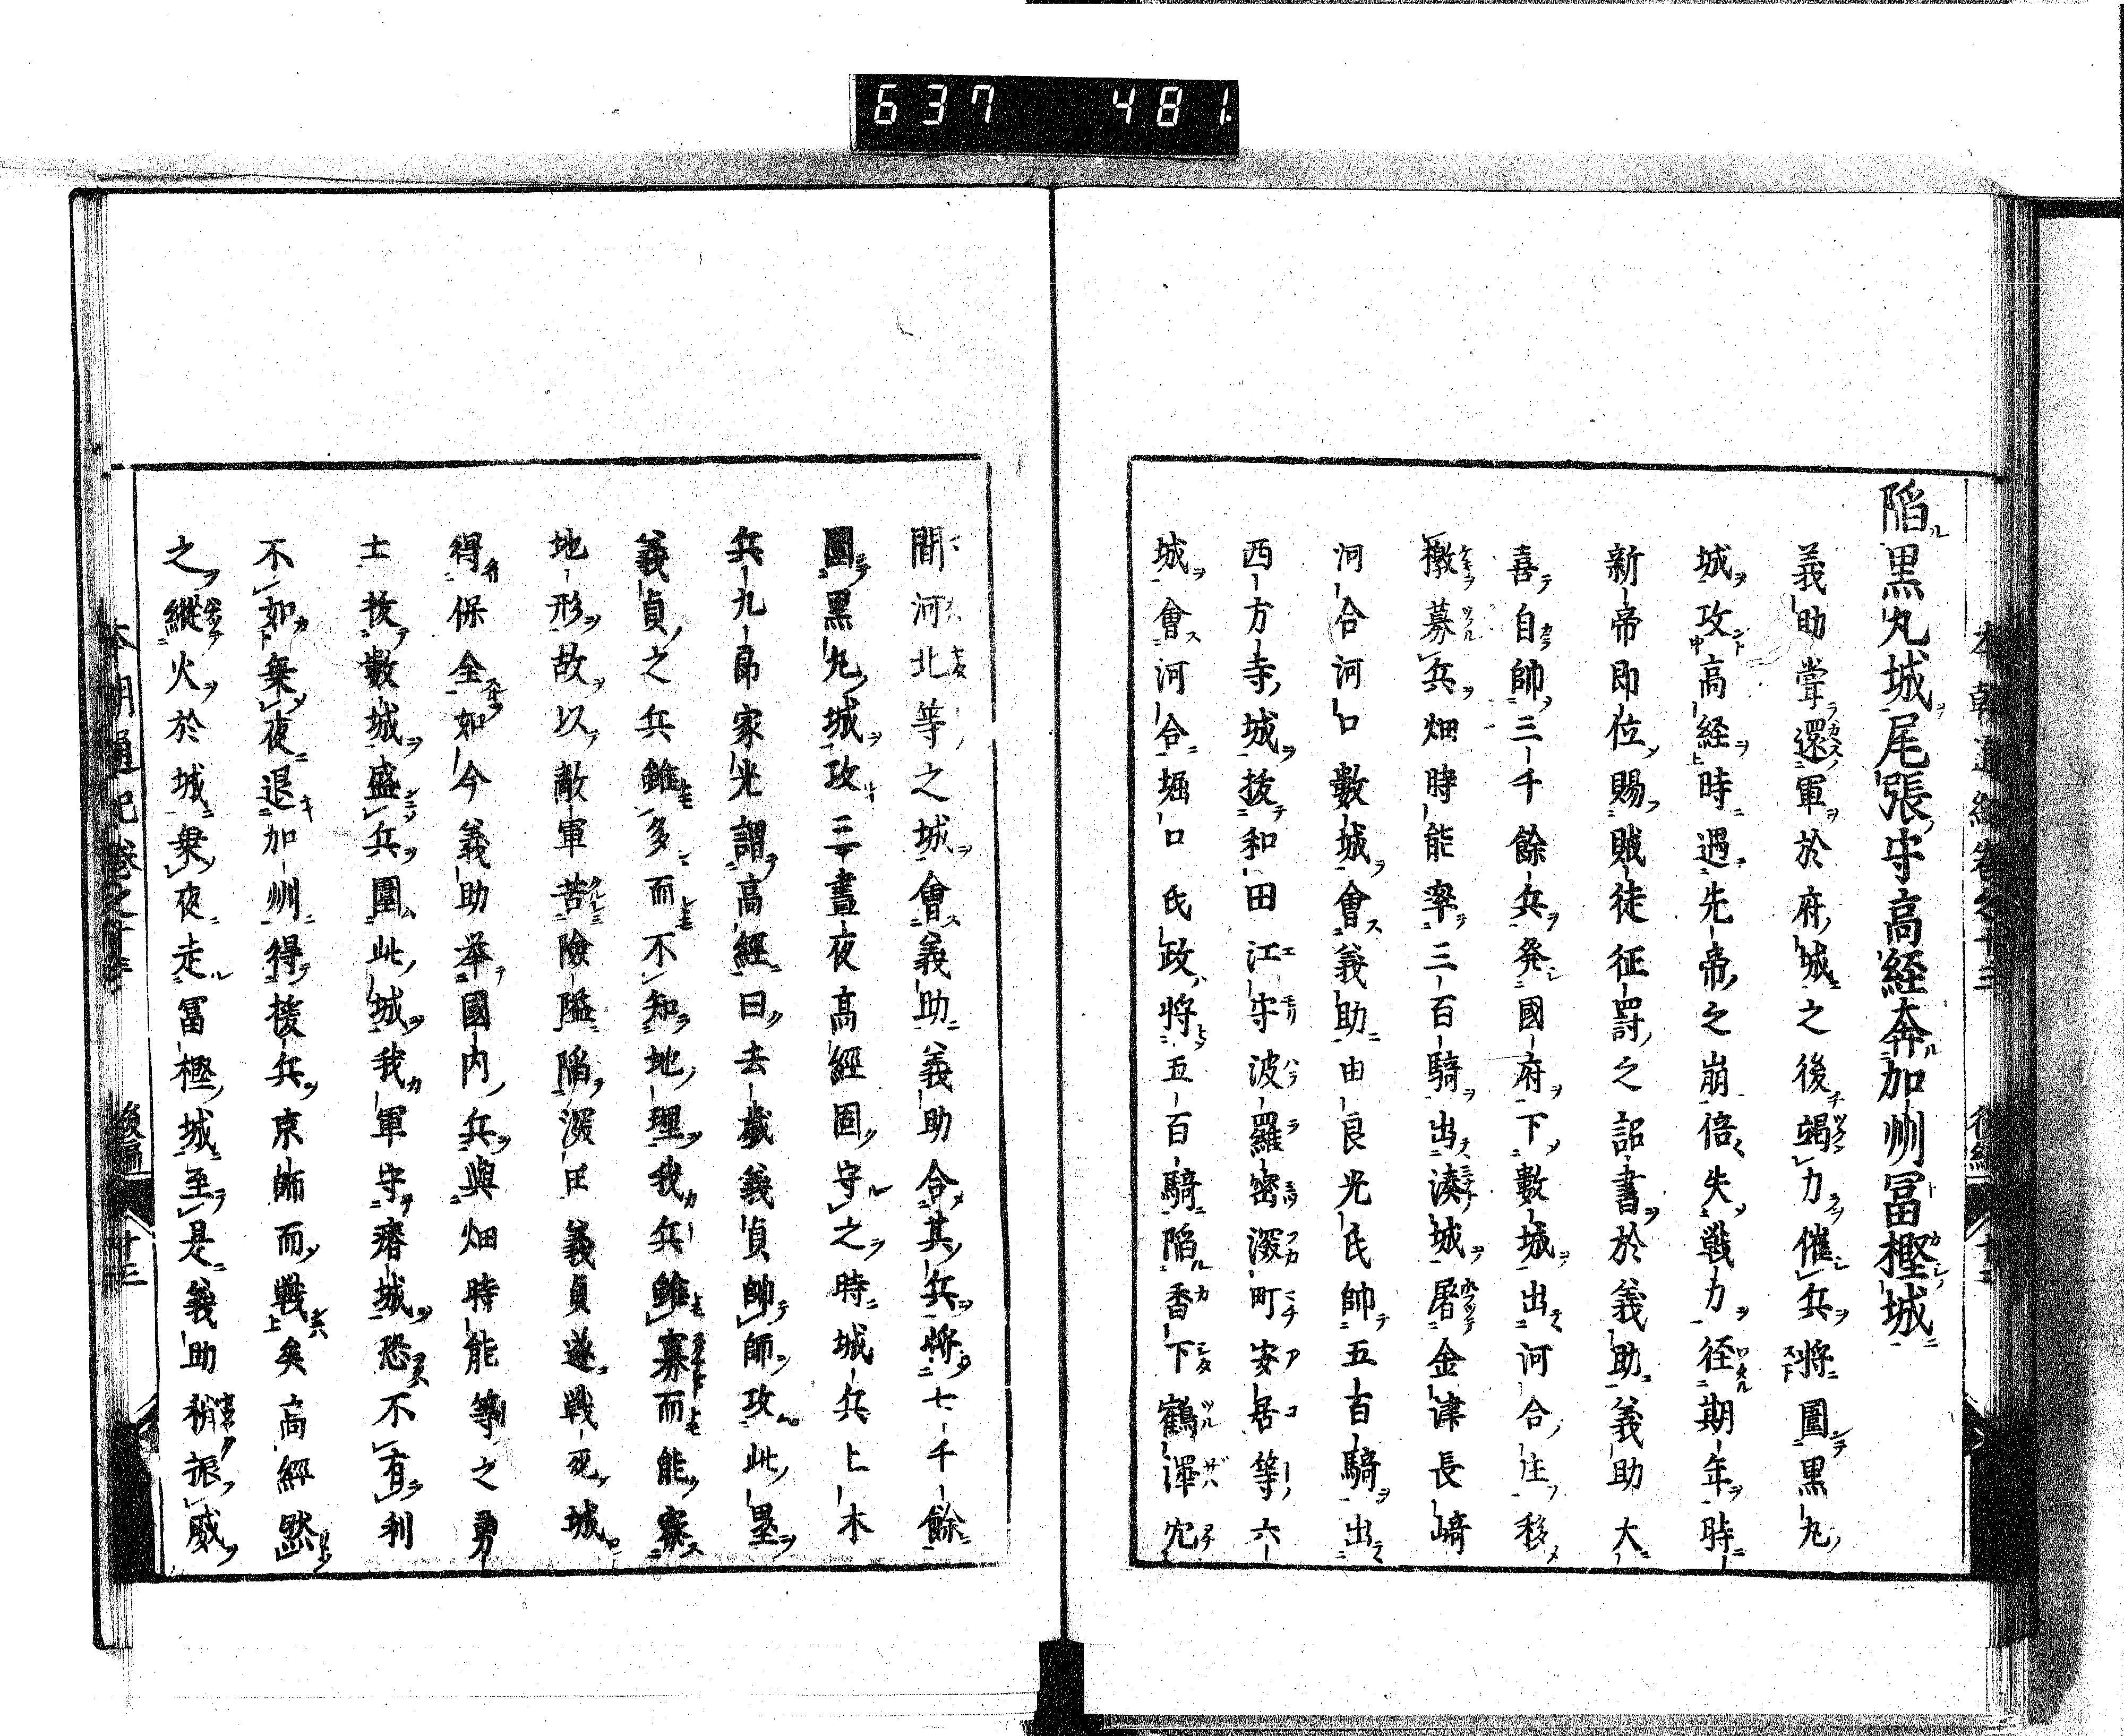 637 481
陥黒丸城尾張守高経奔加州冨樫城
義助甞還軍於府城之後竭力催兵将圍黒丸
城攻高経時遇先帝之崩倍失戦力径期年時
新帝即位賜賊徒征罸之詔書於義助義助大
喜自帥三千餘兵発國府下數城出河合庄移
檄募兵畑時能率三百騎出湊城屠金津長﨑
河合河口數城會義助由良光氏帥五百騎出
西方寺城抜和田江守波羅密深町安居等六
城會河合堀口氏政将五百騎陥香下鶴澤穴
間河北等之城會義助義助合其兵将七千餘
圍黒丸城攻三晝夜高經固守之時城兵上木
兵九郎家光謂高經曰去歳義貞帥師攻此塁
義貞之兵雖多而不知地理我兵雖寡而能察
地形故以敵軍苦險隘陥深田義貞遂戦死城
得保全如今義助举國内兵與畑時能等之勇
士抜數城盛兵圍此城我軍守瘠城恐不有利
不如棄夜退加州得援兵京師而戦矣高經然
之縦火於城棄夜走冨樫城至是義助稍振威
本朝通紀巻之十三 後編 十三